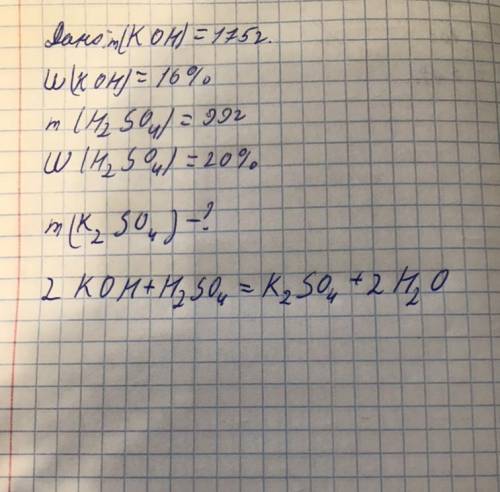 Дано: m(KOH)=175г.
W(KOH)=16%
m(H₂SO₄)=99г
W(H₂SO₄)=20%
m(K₂SO₄)-?
2KOH+H₂SO₄=K₂SO₄+2H₂O